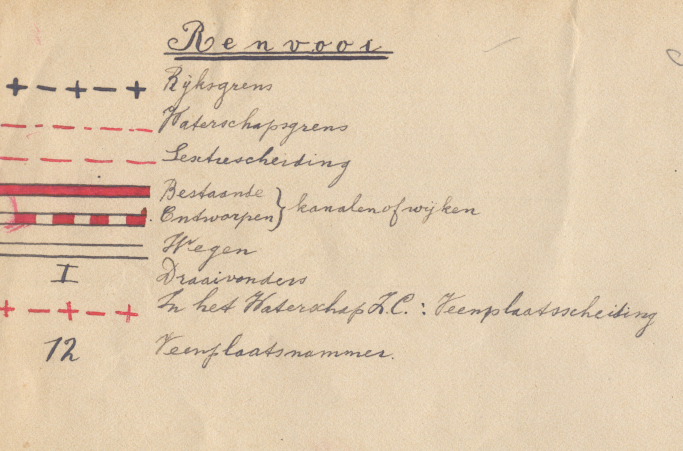 Renvooi
Rijksgrens
Waterschapsgrens
Sectiescheiding
Bestaande
Ontworpen } kanalen of wijken
Wegen
I Draaivonders
In het Waterschap Z.C.: Veenplaatsscheiding
12 Veenplaatsnummer.